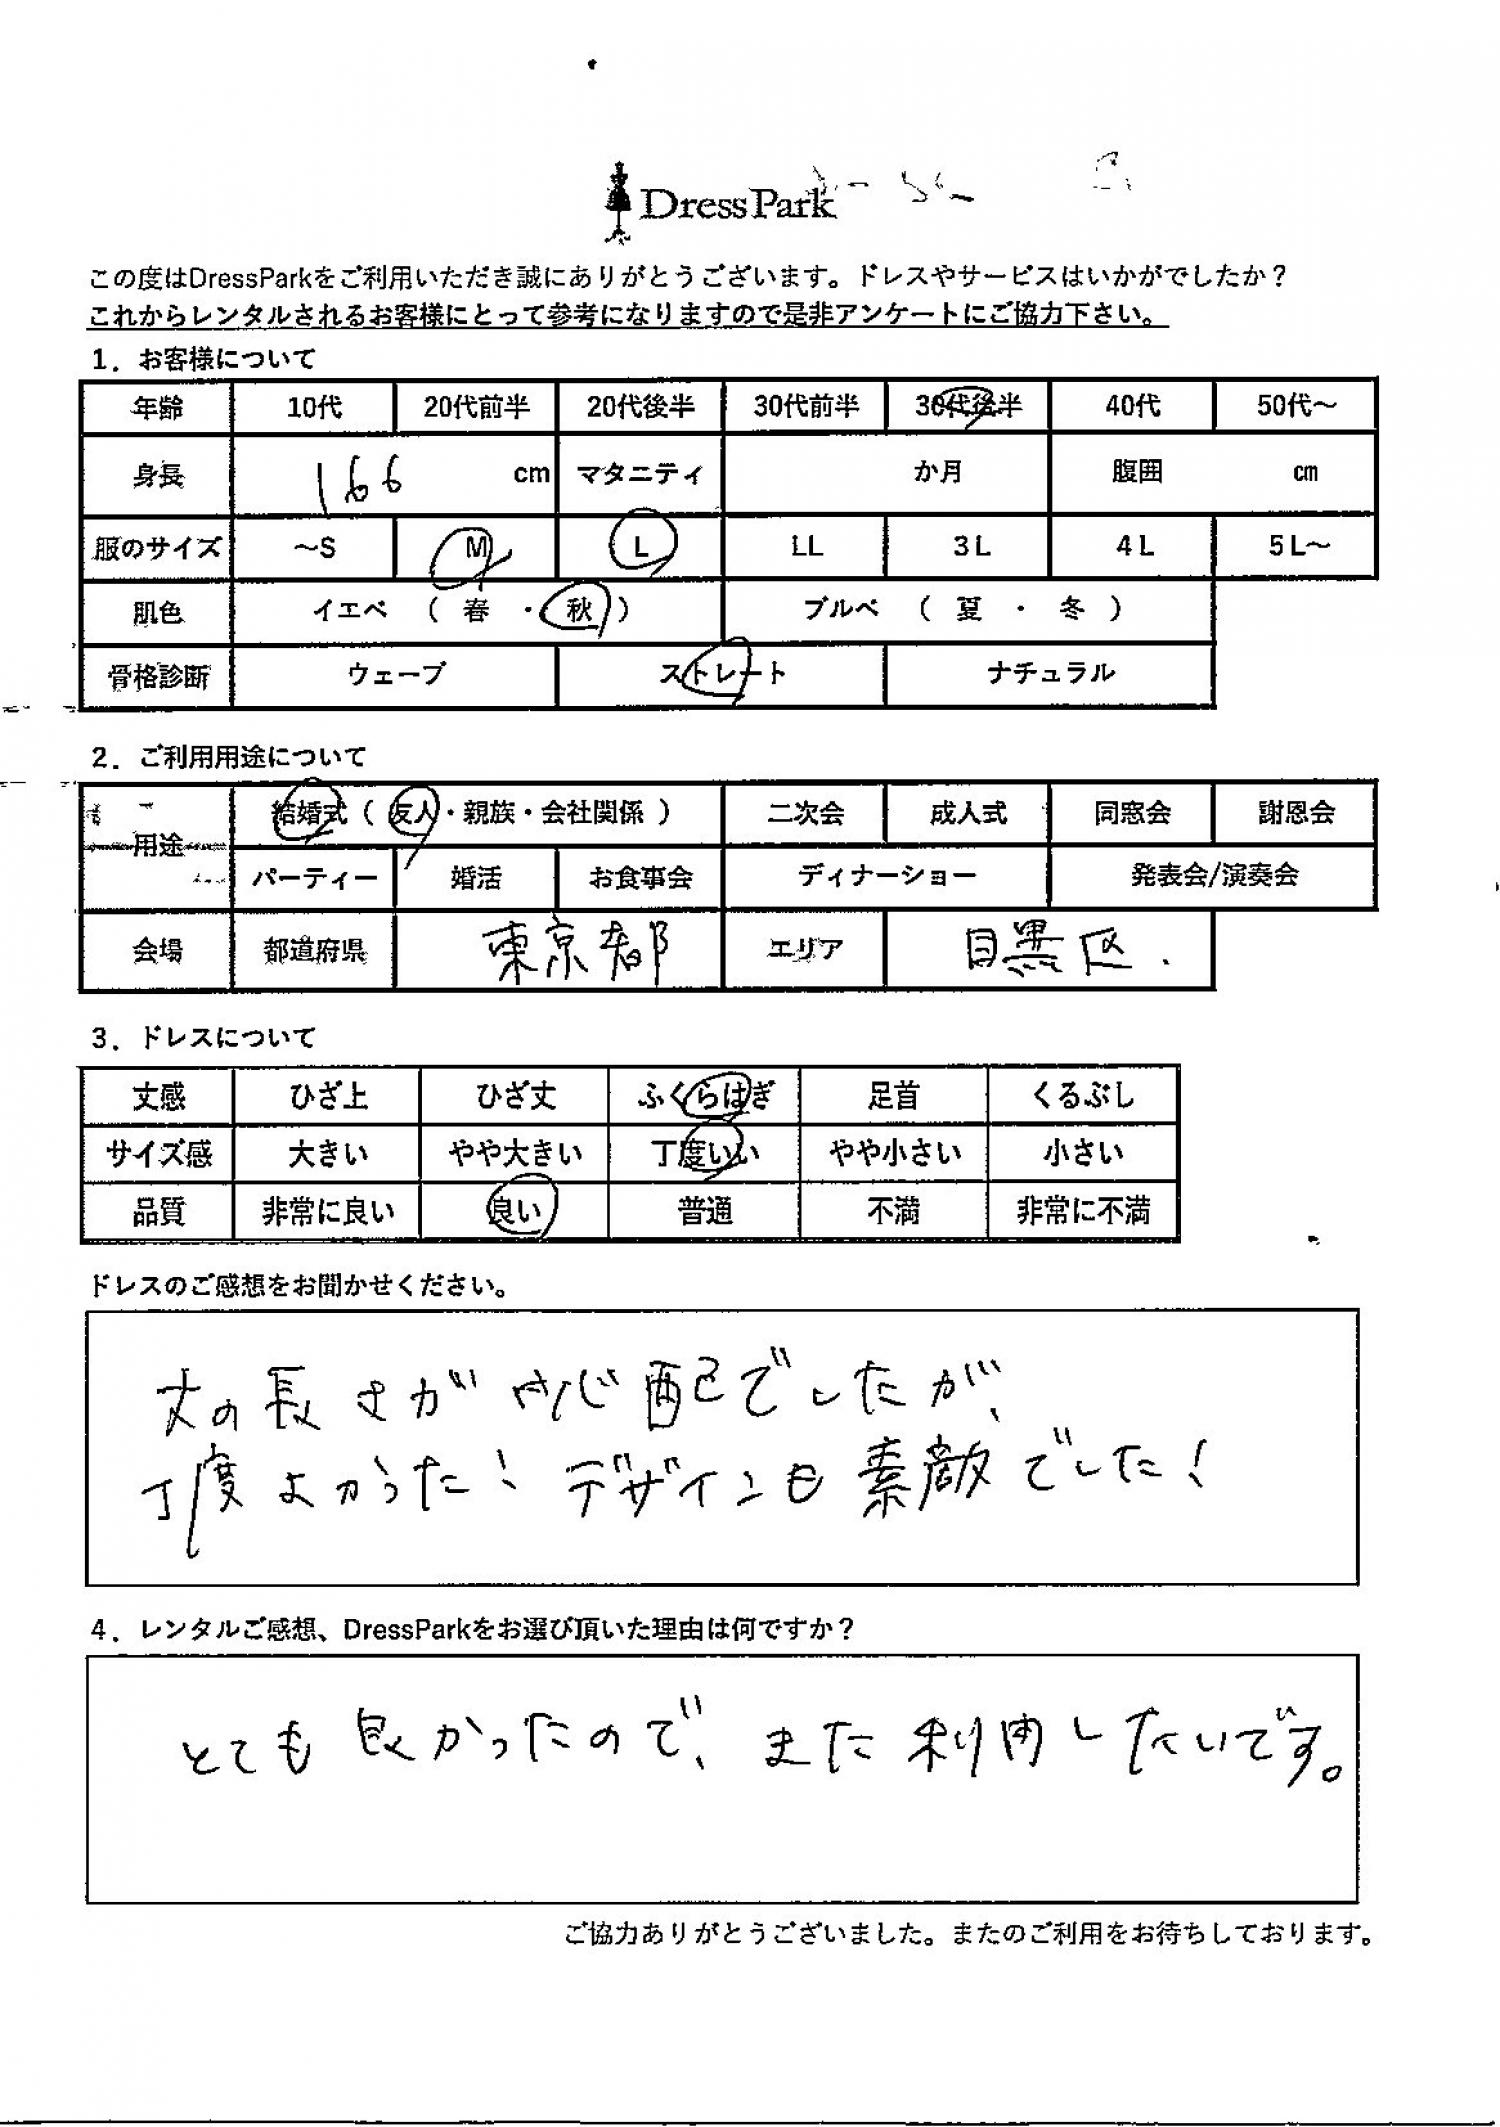 DressPark
この度はDressParkをご利用いただき誠にありがとうございます。ドレスやサービスはいかがでしたか？
これからレンタルされるお客様にとって参考になりますので是非アンケートにご協力下さい。
1．お客様について
年齢 10代 20代前半 20代後半 30代前半 30代後半 40代 50代～
身長 166 cm マタニティ か月 腹囲 cm
服のサイズ ～S M L LL 3L 4L 5L～
肌色 イエベ （ 春 ・ 秋 ） ブルベ （ 夏 ・ 冬 ）
骨格診断 ウェーブ ストレート ナチュラル
2．ご利用用途について
用途 結婚式（ 友人・親族・会社関係 ） 二次会 成人式 同窓会 謝恩会
パーティー 婚活 お食事会 ディナーショー 発表会/演奏会
会場 都道府県 東京都 エリア 目黒区.
3．ドレスについて
丈感 ひざ上 ひざ丈 ふくらはぎ 足首 くるぶし
サイズ感 大きい やや大きい 丁度いい やや小さい 小さい
品質 非常に良い 良い 普通 不満 非常に不満
ドレスのご感想をお聞かせください。
丈の長さが心配でしたが、
丁度よかった！デザインも素敵でした！
4．レンタルご感想、DressParkをお選び頂いた理由は何ですか？
とても良かったので、また利用したいです。
ご協力ありがとうございました。またのご利用をお待ちしております。